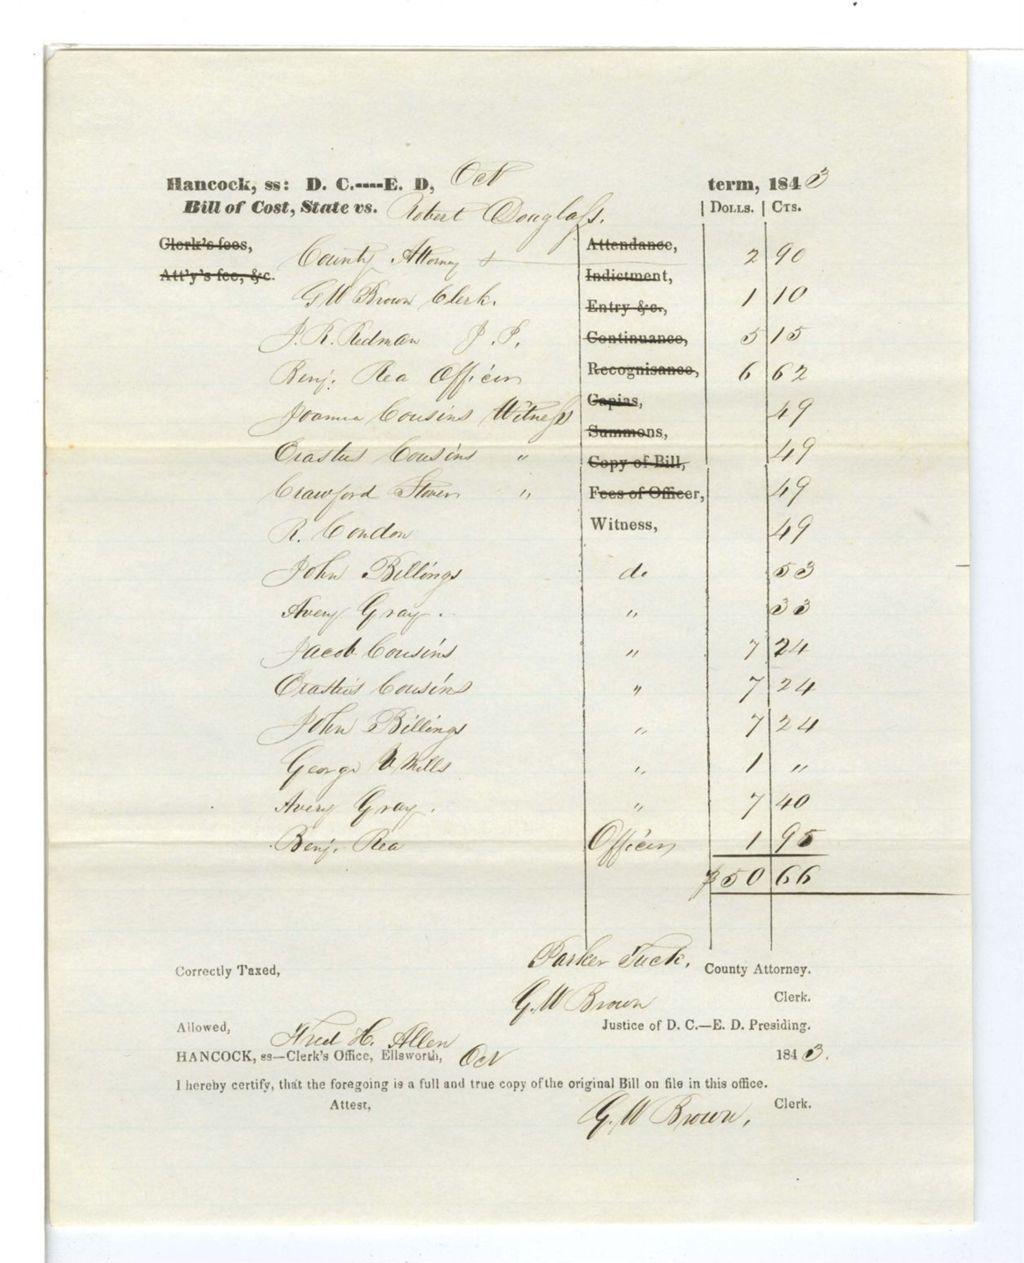 Hancock, ss: D. C.----E. D, Oct term, 1843
Bill of Cost, State vs. Robert Douglass. | Dolls. | Cts.
Clerk's fees, County Attorney Attendance, 2 90
Att'y's fee, &c. Indictment,
G W Brown Clerk. Entry &c., 1 10
J. R. Redman J. P. Continuance, 5 15
Benj. Rea Officer Recognisance, 6 62
Joanna Cousins Witness Capias, 49
Summons,
Erastus Cousins " Copy of Bill, 49
Crawford Stover " Fees of Officer, 49
R. Condon Witness, 49
John Billings do 53
Avery Gray. " 33
Jacob Cousins " 7 24
Erastus Cousins " 7 24
John Billings " 7 24
George Wells " 1 "
Avery Gray. " 7 40
Benj. Rea Officer 1 95
$50 66
Parker Tuck,
Correctly Taxed, County Attorney.
G. W Brown Clerk.
Allowed, Fred H. Allen Justice of D. C.—E. D. Presiding.
HANCOCK, ss—Clerk's Office, Ellsworth, Oct 1843.
I hereby certify, that the foregoing is a full and true copy of the original Bill on file in this office.
Attest, G. W Brown, Clerk.